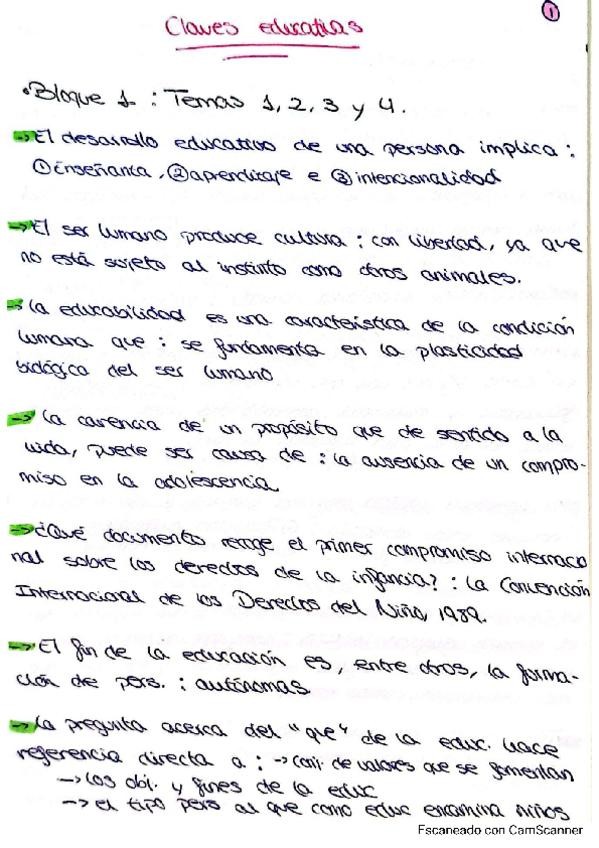 1
Claves educativas
• Bloque 1 : Temas 1, 2, 3 y 4.
→ El desarrollo educativo de una persona implica :
① Enseñanza, ② aprendizaje e ③ intencionalidad
→ El ser humano produce cultura : con libertad, ya que
no está sujeto al instinto como otros animales.
→ La educabilidad es una característica de la condición
humana que : se fundamenta en la plasticidad
biológica del ser humano
→ La carencia de un propósito que de sentido a la
vida, puede ser causa de : la ausencia de un compro-
miso en la adolescencia
→ ¿Qué documento recoge el primer compromiso internacio
nal sobre los derechos de la infancia? : La Convención
Internacional de los Derechos del Niño, 1989.
→ El fin de la educación es, entre otros, la forma-
ción de pers. : autónomas
→ La pregunta acerca del "que" de la educ. hace
referencia directa a : → conj. de valores que se fomentan
→ los obj. y fines de la educ
→ el tipo pers al que como educ encamina niños
Escaneado con CamScanner